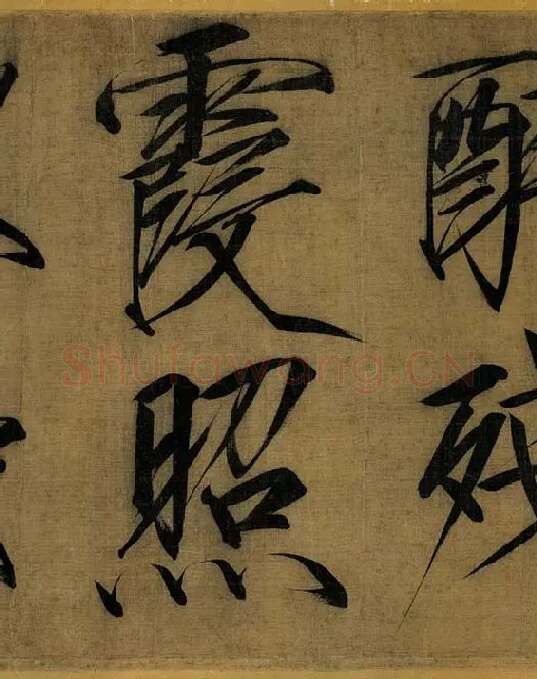 醉殘
霞照
Shufawang.CN